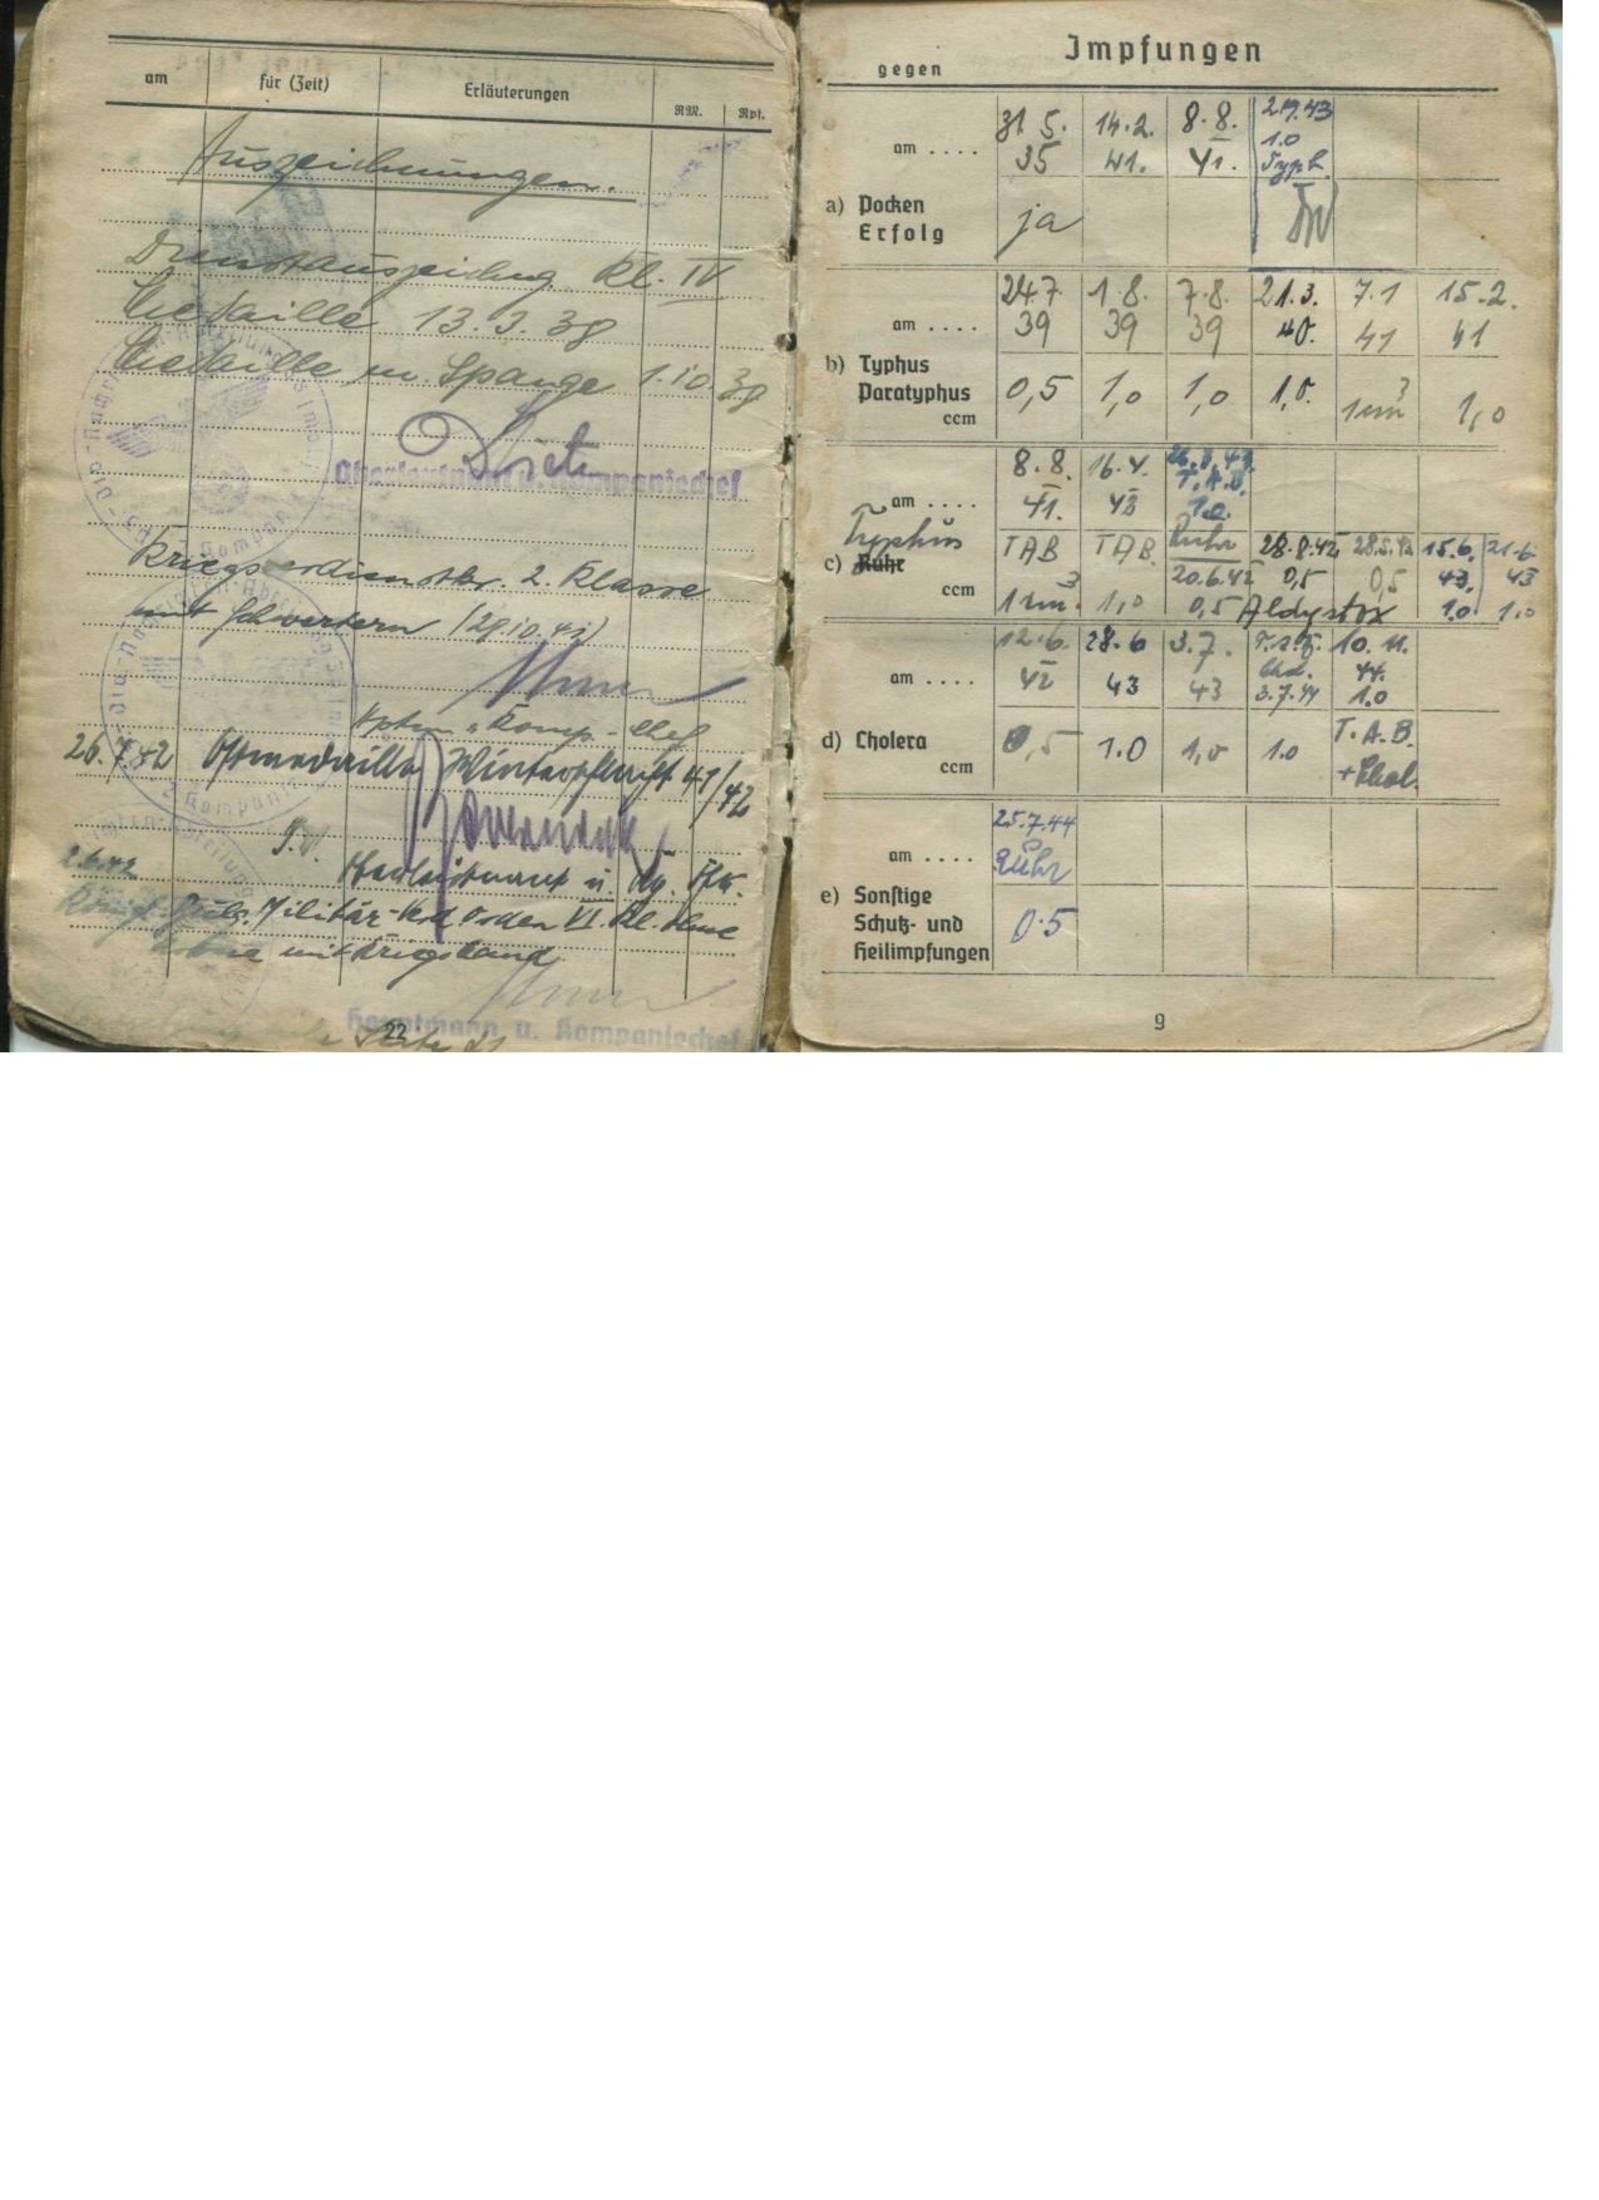 am für (Zeit) Erläuterungen RM. Rpf.
Auszeichnungen.
Dienstauszeichng. Kl. IV
Medaille 13.3.38
Medaille m. Spange 1.10.38
Oberleutnant u. Kompaniechef
Kriegsverdienstkr. 2. Klasse
mit Schwertern
Hptm u. Komp.-Chef
26.7.42 Ostmedaille Winterschlacht 41/42
Oberleutnant u.
Königl. Bulg. Militär-Verd. Orden VI. Kl. ohne
Krone mit Kriegsband
Hauptmann u. Kompaniechef
22
Seite
Impfungen
gegen
am .... 31.5.35 14.2.41. 8.8.41. 1.0 Typh.
a) Pocken
Erfolg ja
am .... 24.7.39 1.8.39 7.8.39 21.3.40. 7.1 41 15.2.41
b) Typhus
Paratyphus
ccm 0,5 1,0 1,0 1,0. 1cm³ 1,0
am .... 8.8.41. 16.4. T.A.B. 1.0.
Typhus
c) Ruhr TAB TAB. Ruhr 28.8.42 28.5.42 15.6.43. 21.6.43
20.6.42 0,5 0,5
ccm 1cm³. 1,0 0,5 Aldystox 1.0. 1.0
am .... 12.6.42 28.6 43 3.7.43 3.7.44 10.11.44. 1.0
d) Cholera
ccm 0,5 1.0 1,0 1.0 T.A.B. +Chol.
am .... 25.7.44 Ruhr
e) Sonstige
Schutz- und
Heilimpfungen 0.5
9